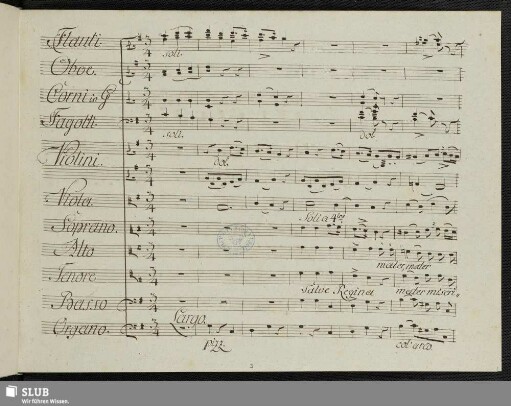 Flauti
soli.
Oboe.
Corni in G
Fagotti
soli.
dol
Violini.
dol.
Viola.
Soli a 4tro
Soprano.
Alto
mater mater
Tenore
Salve Regina mater miseri,,
Basso
Largo.
Organo.
pizz
col arco
2
SLUB
Wir führen Wissen.